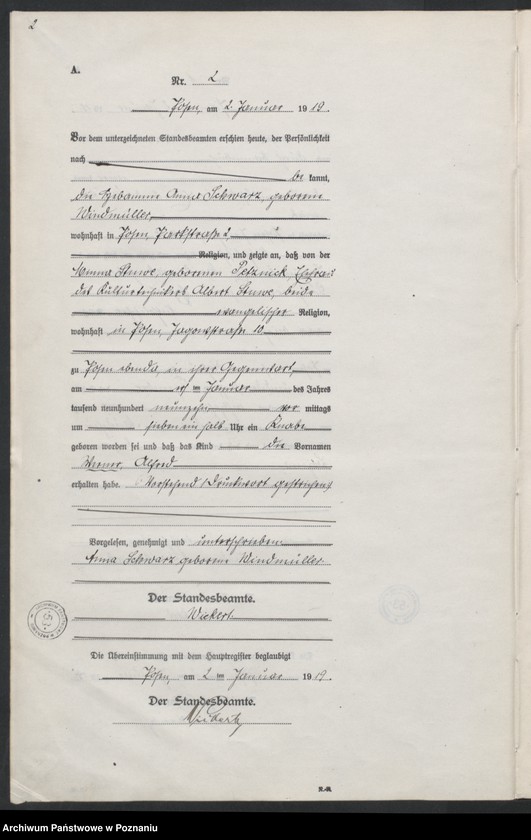 2
A.
Nr. 2
Posen, am 2. Januar 1919.
Vor dem unterzeichneten Standesbeamten erschien heute, der Persönlichkeit
nach
be kannt,
die Hebamme Anna Schwarz, geborene
Windmüller,
wohnhaft in Posen, Parkstraße 2,
Religion, und zeigte an, daß von der
Stuwe, geborenen Petznick, Ehefrau
des Kulturtechnikers Albert Stuwe, beide
evangelischer Religion,
wohnhaft in Posen, Jagowstraße 10
zu Posen ebenda, in ihrer Gegenwart,
am ten Januar des Jahres
tausend neunhundert neunzehn vor mittags
um sieben ein halb Uhr ein Knabe
geboren worden sei und daß das Kind die Vornamen
Werner Alfred
erhalten habe. Vorstehend 1 Druckwort gestrichen.
Vorgelesen, genehmigt und unterschrieben
Anna Schwarz geborene Windmüller.
Der Standesbeamte.
Wickert.
Die Übereinstimmung mit dem Hauptregister beglaubigt
Posen, am 2 ten Januar 1919.
Der Standesbeamte.
Wickert
53.
R.-A.
Archiwum Państwowe w Poznaniu